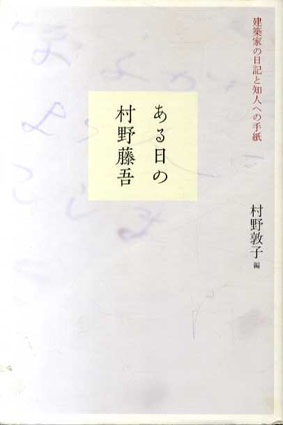 建築家の日記と知人への手紙
ある日の
村野藤吾
村野敦子 編